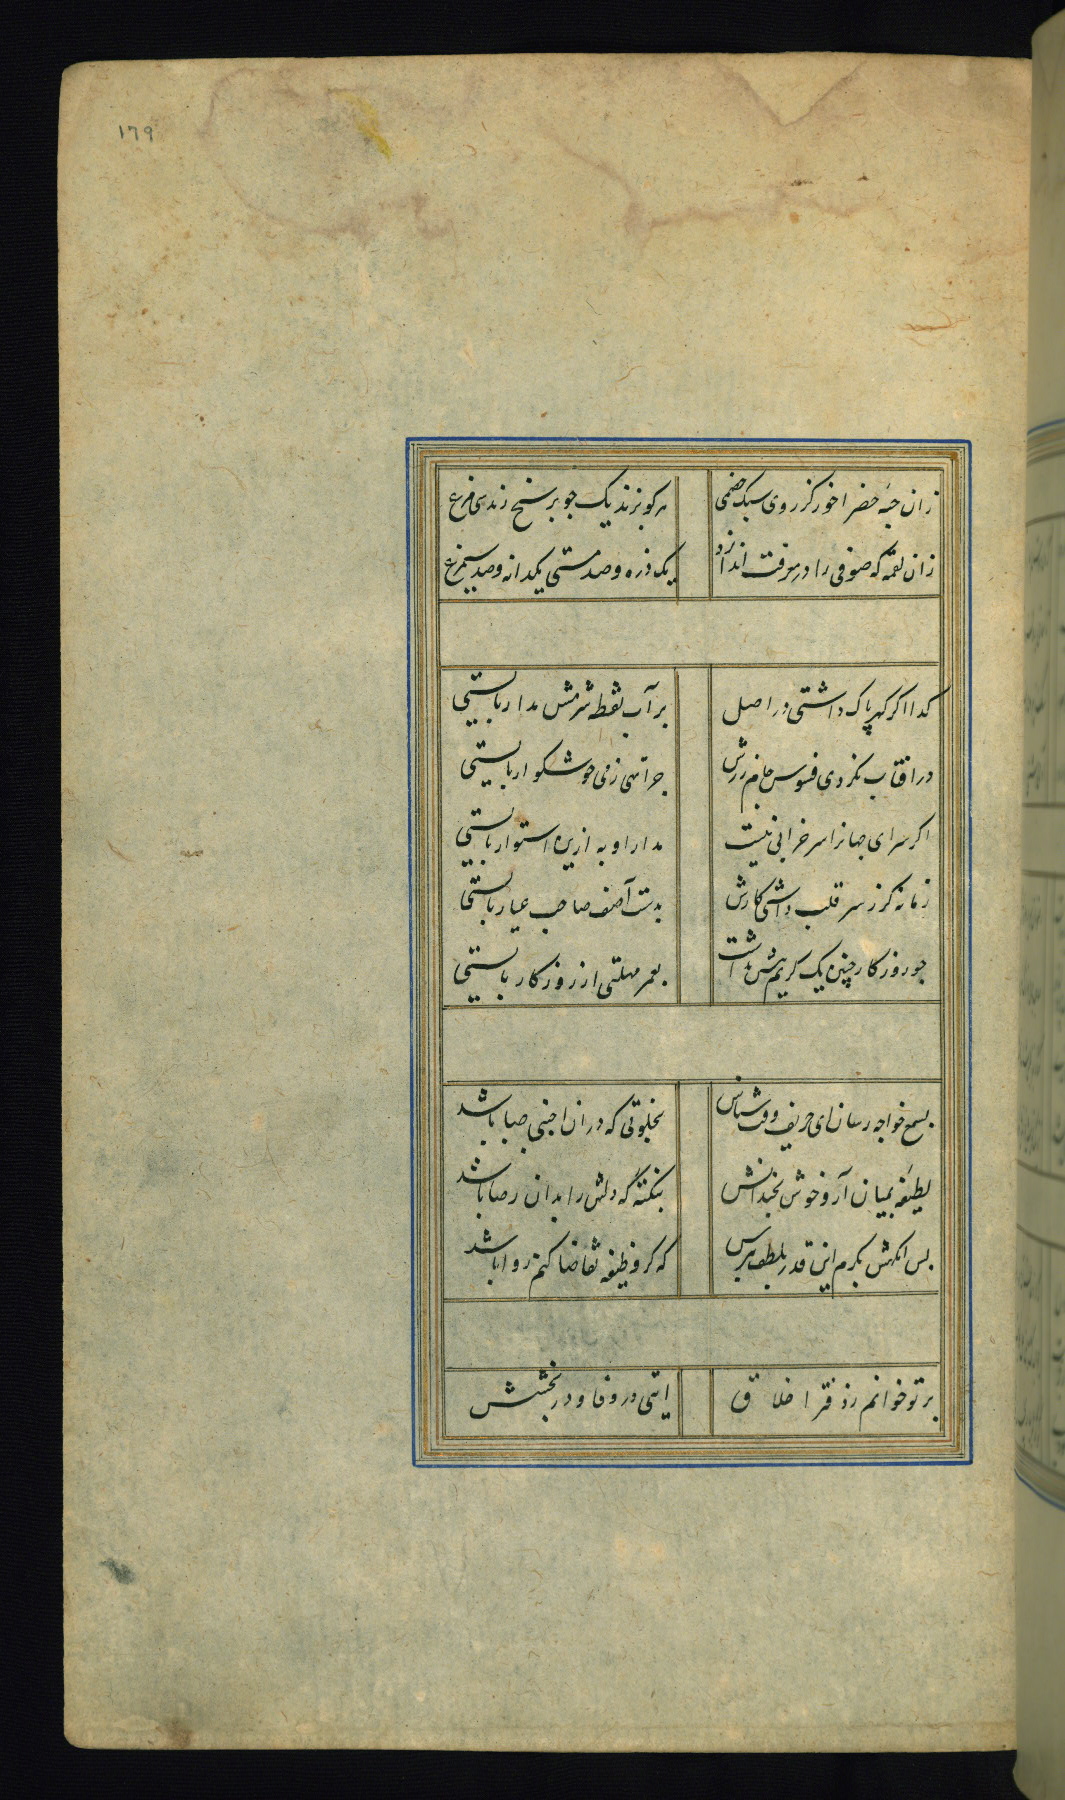 ١٦٩
زان حبّه خضرا خور کز روی سبک هضمی هر کو بزند یک جو بر سیخ زند سی مرغ
زان لقمه که صوفی را در معرفت اندازد یک ذره و صد مستی یکدانه و صد سیمرغ
کدا اکر کهر پاک داشتی در اصل بر آب نقطه شرمش مدار بایستی
در افتاب نکردی فسوس جام زرش چرا تهی ز می خوشکوار بایستی
اکر سرای جهانرا سر خرابی نیست مدار او به ازین استوار بایستی
زمانه کر ز سر قلب داشتی کارش بدست آصف صاحب عیار بایستی
چو روزکار چنین یک کریم بیش نداشت بعمر مهلتی از روزکار بایستی
بسمع خواجه رسان ای حریف وقت شناس بخلوتی که در ان اجنبی صبا باشد
لطیفه بمیان آر و خوش بخندانش بنکته که دلش را بدان رضا باشد
پس انکهش بکرم این قدر بلطف بپرس که کر وظیفه تقاضا کنم روا باشد
بر تو خوانم ز دفتر اخلاق ایتی در وفا و در بخشش